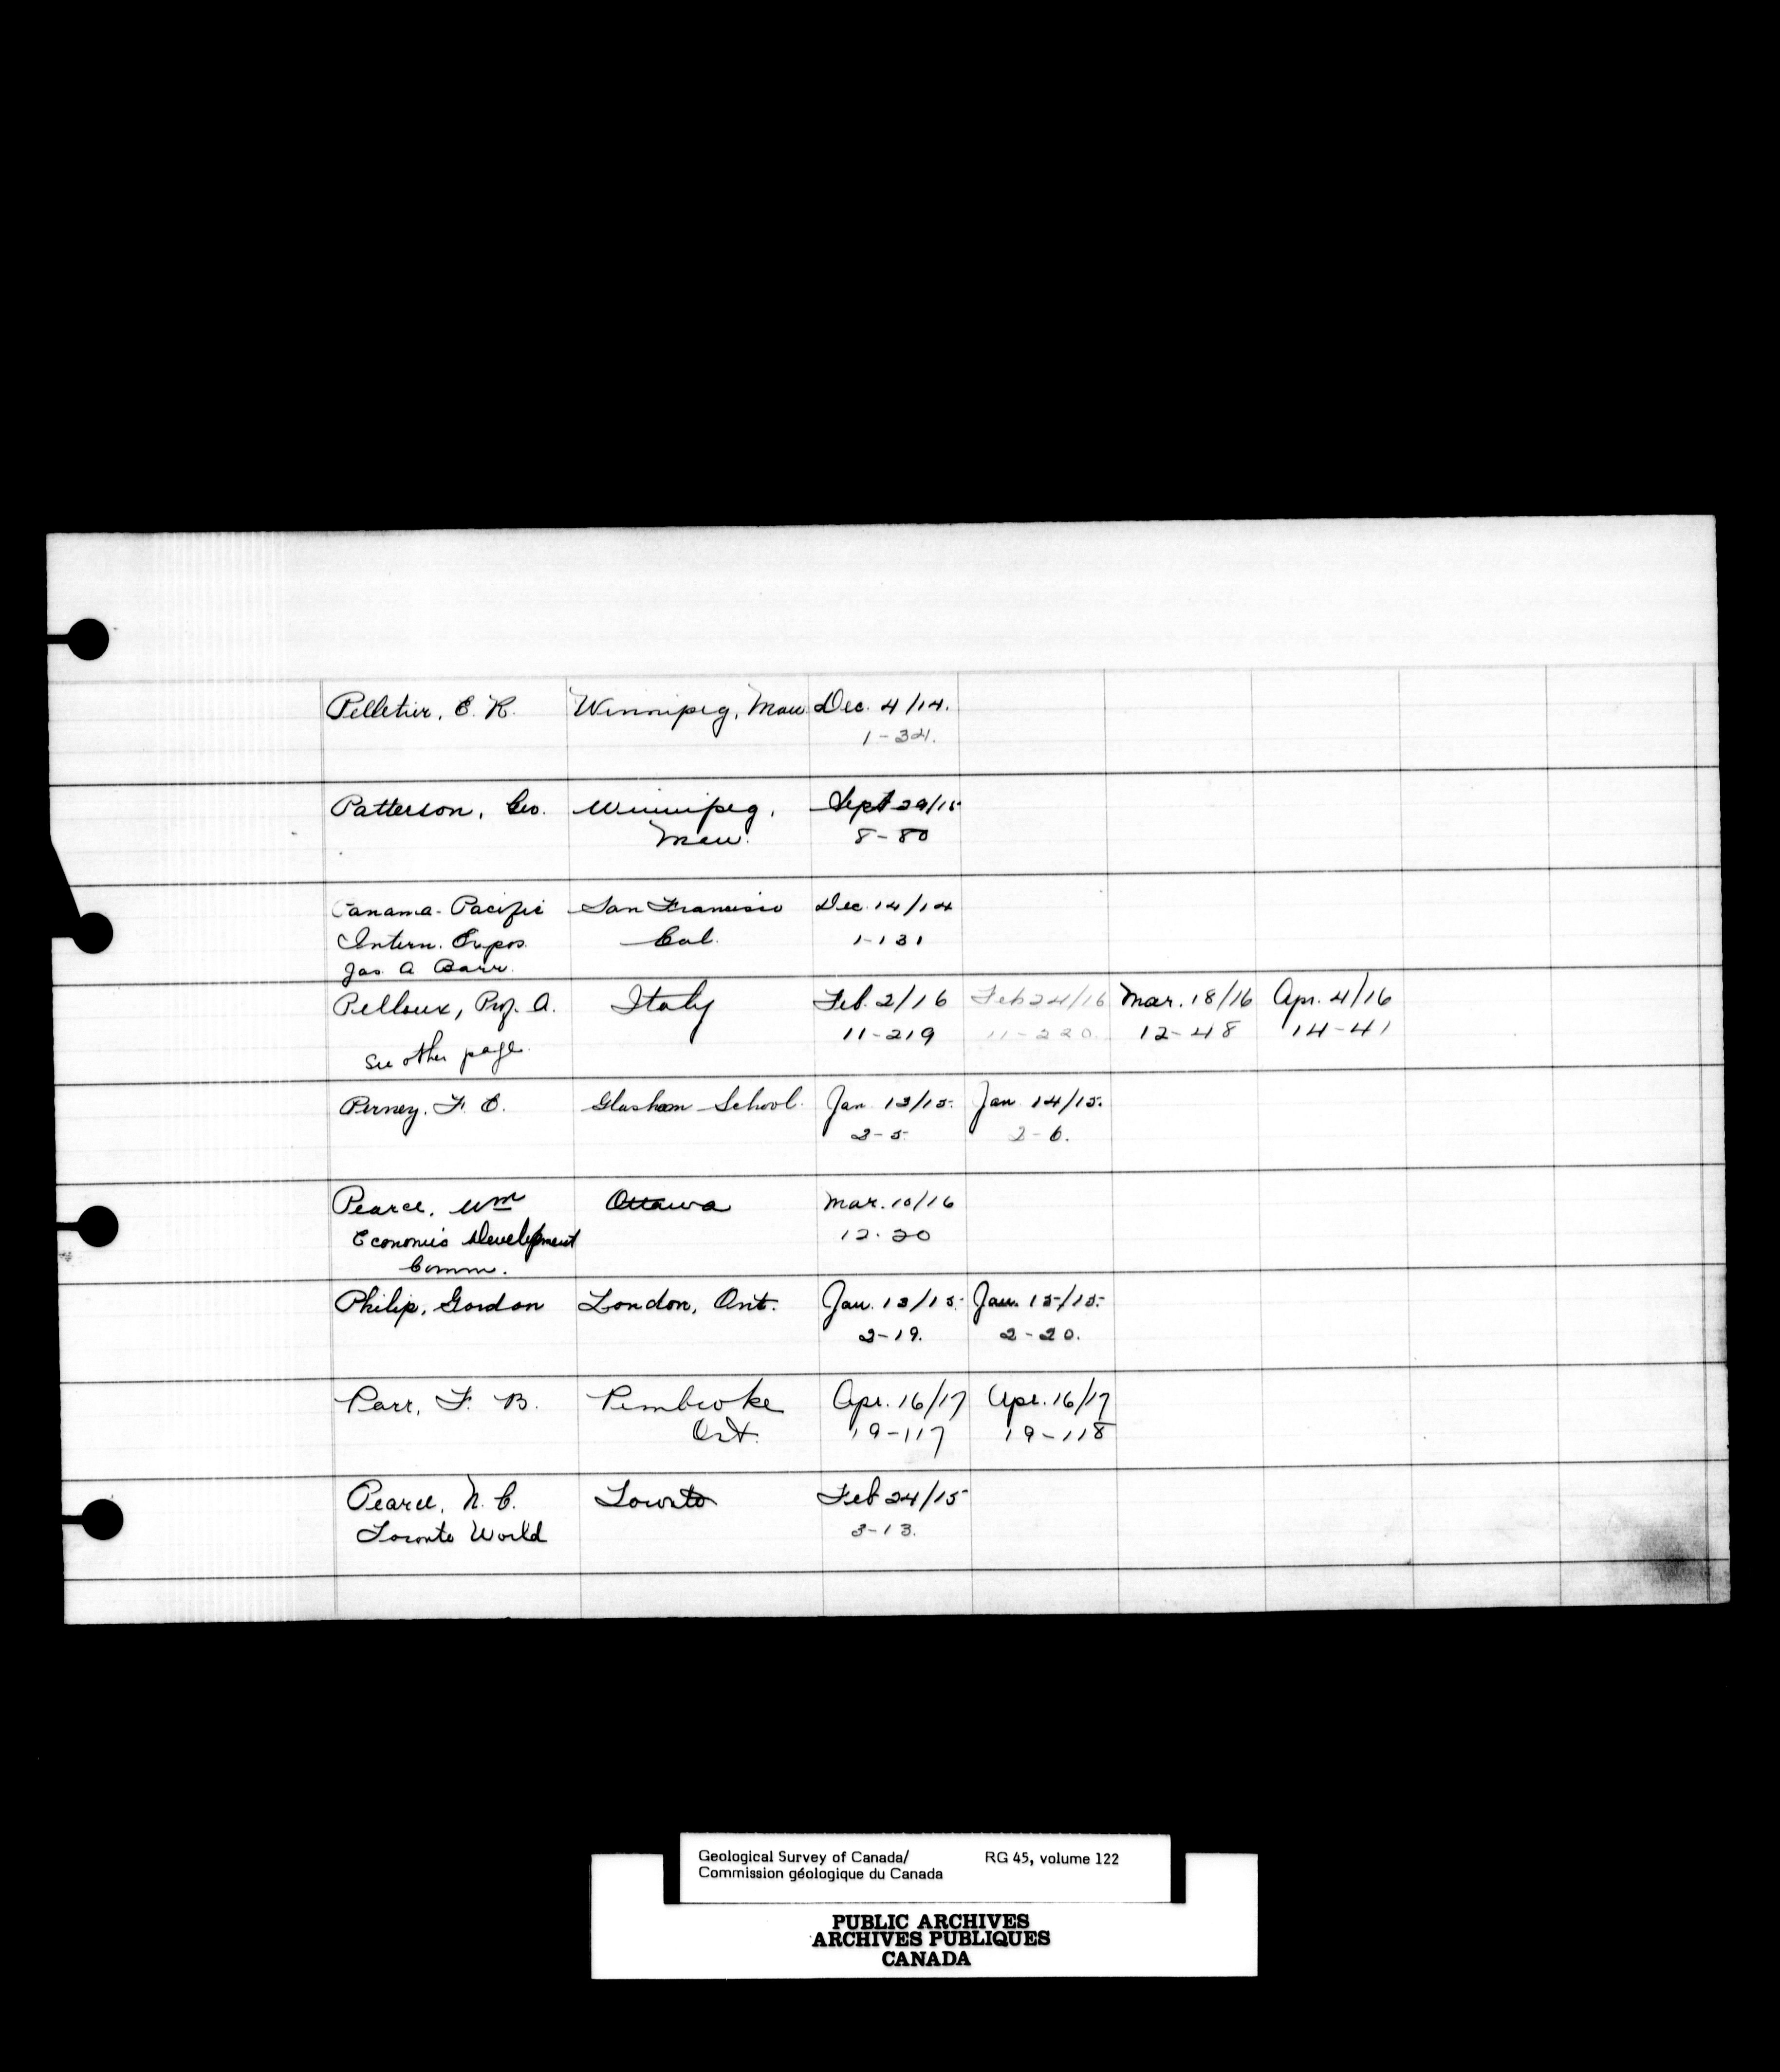 Pelletier, E. R. Winnipeg, Man Dec. 4/14.
1-34.
Patterson, Geo. Winnipeg, Sept 29/15
Man. 8-80
Panama-Pacific San Francisco Dec. 14/14
Intern. Expos. Cal. 1-131
Jas. A Barr.
Pelloux, Prof. A. Italy Feb. 2/16 Feb 24/16 Mar. 18/16 Apr. 4/16
11-219 11-220. 12-48 14-41
See other page.
Perney. F. E. Glashan School. Jan 13/15. Jan 14/15.
2-5. 2-6.
Pearce, Wm Ottawa Mar. 10/16
Economic Development 12-20
Comm.
Philip, Gordon London, Ont. Jan. 13/15. Jan. 15/15.
2-19. 2-20.
Parr, F. B. Pembroke Apr. 16/17 Apr. 16/17
Ont. 19-117 19-118
Pearce, N. C. Toronto Feb 24/15
Toronto World 3-13.
Geological Survey of Canada/ RG 45, volume 122
Commission géologique du Canada
PUBLIC ARCHIVES
ARCHIVES PUBLIQUES
CANADA